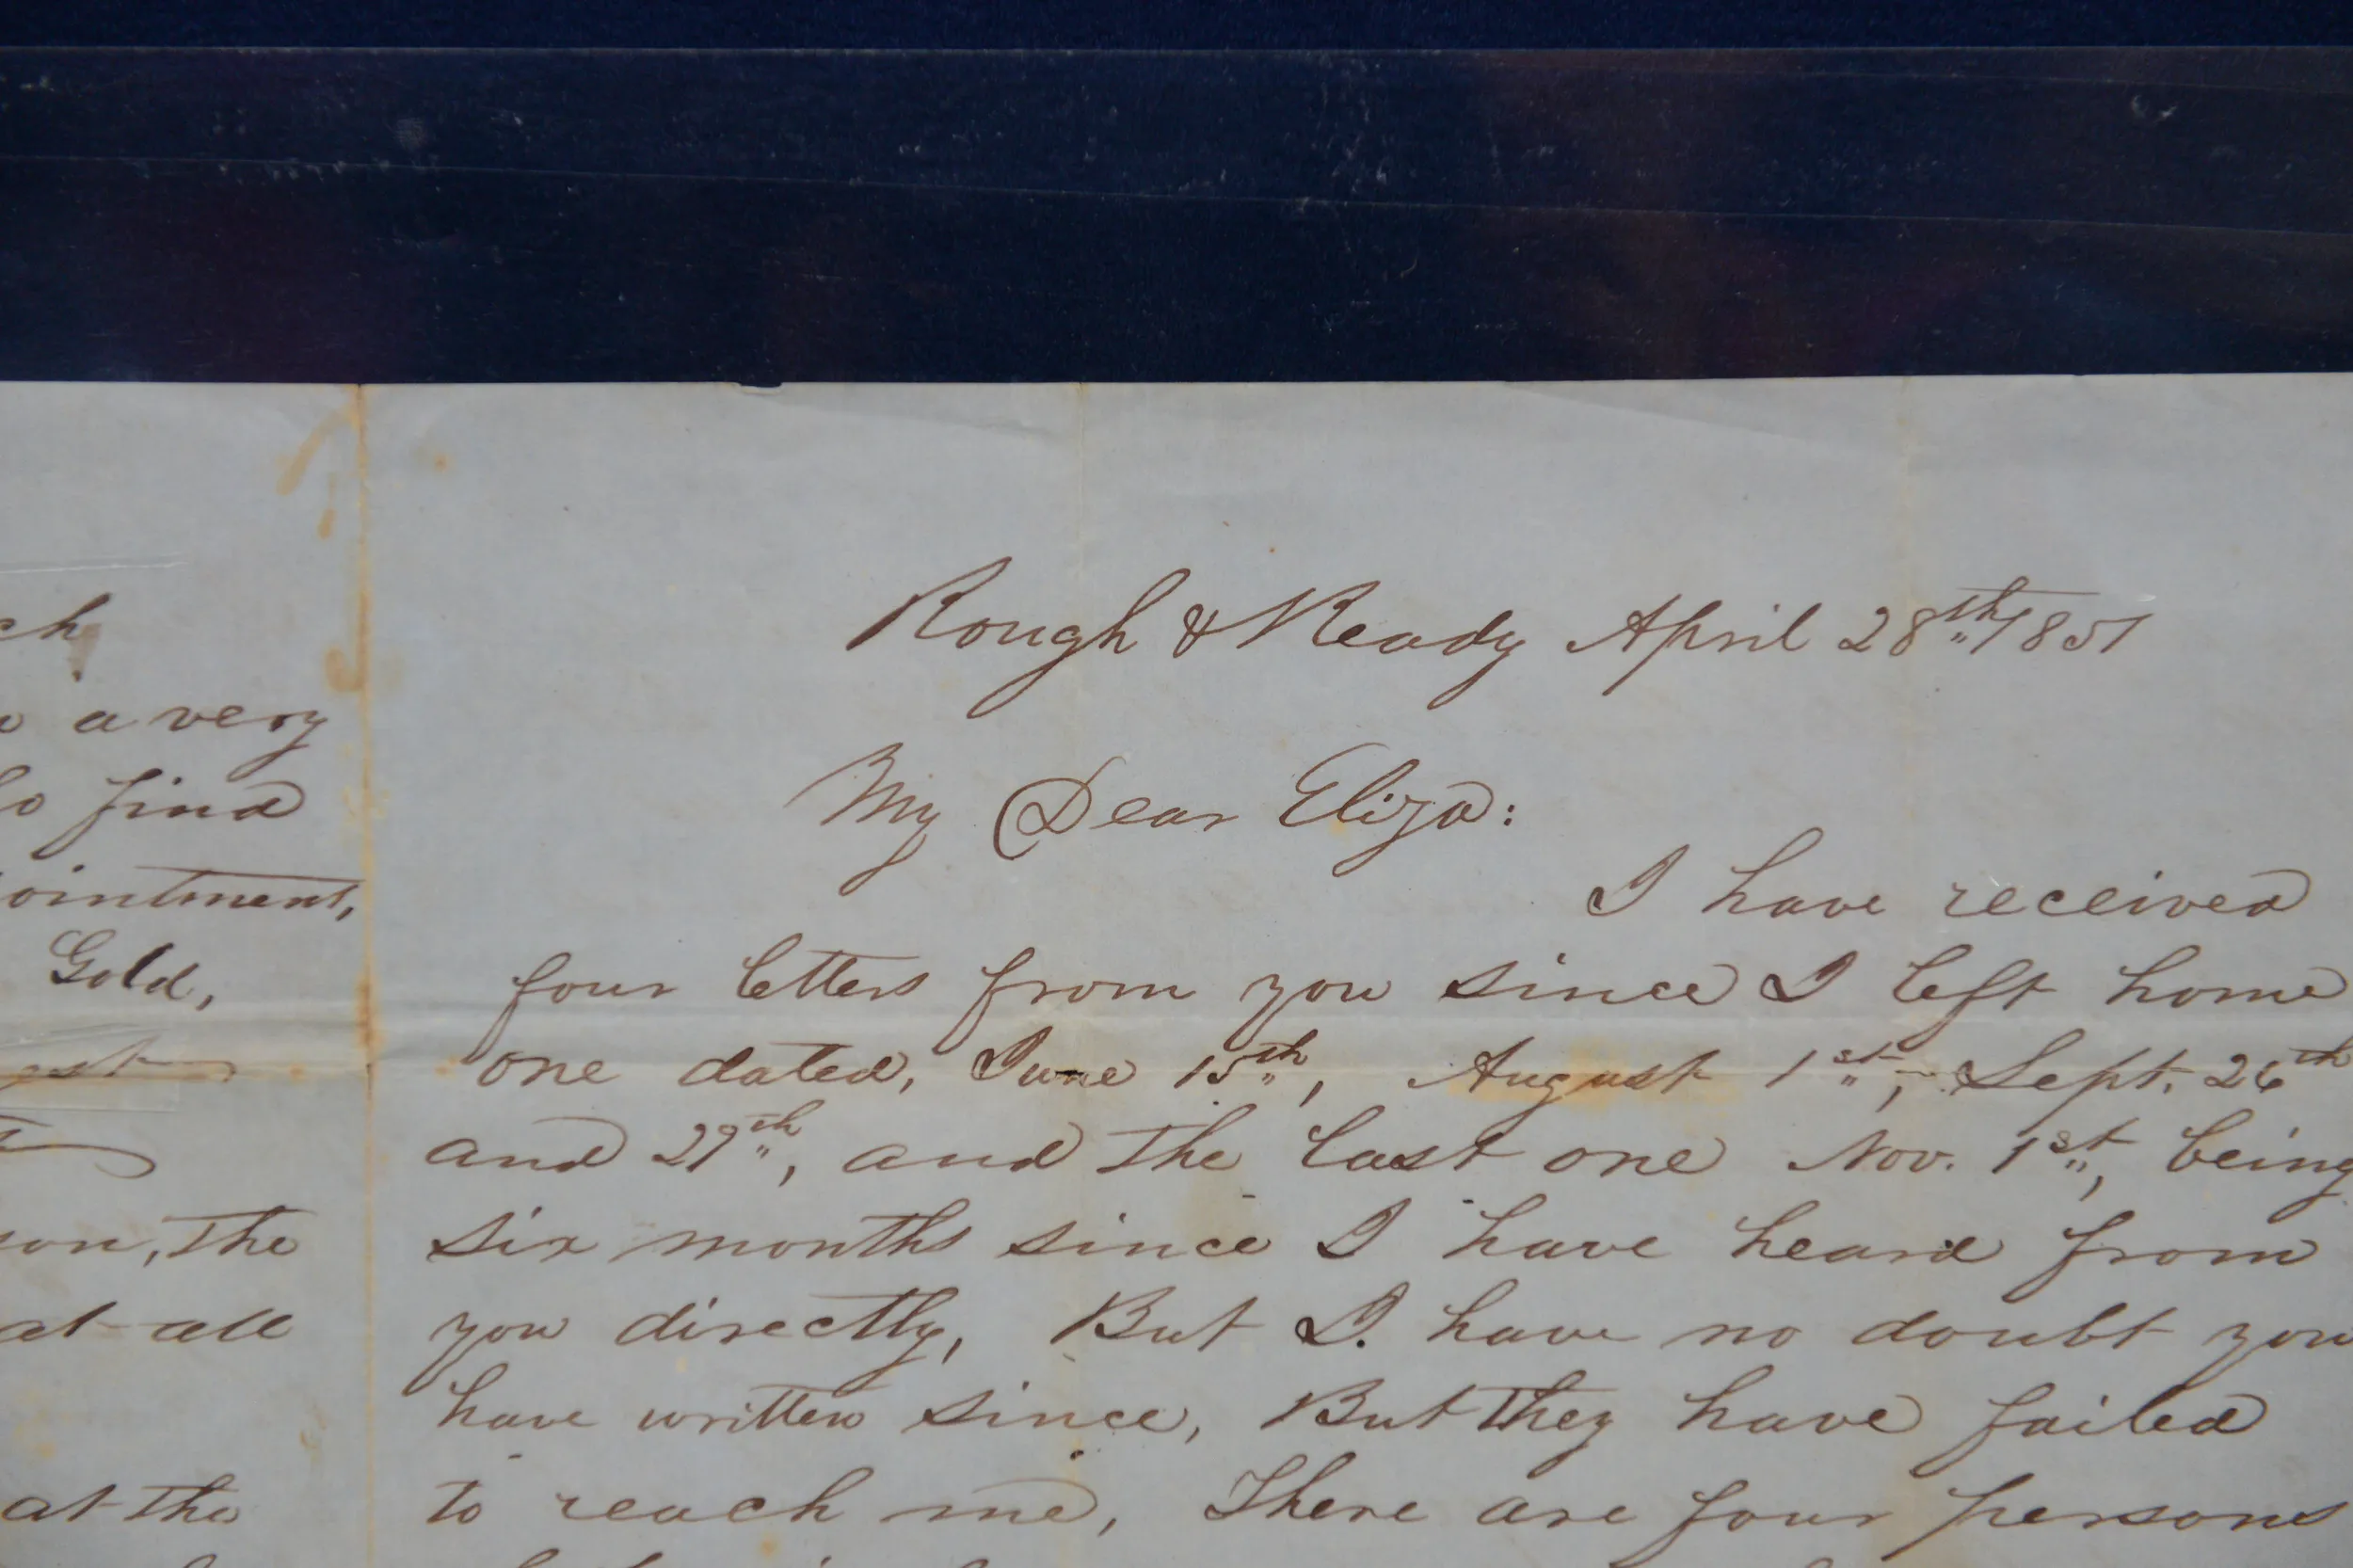 ch
a very
find
ointment,
Gold,
on, the
at all
at the
Rough & Ready April 28th 1851
My Dear Eliza:
I have received
four letters from you since I left home
one dated, June 15th, August 1st, Sept. 26th
and 29th, and the last one Nov. 1st, being
six months since I have heard from
you directly, But I. have no doubt you
have written since, But they have failed
to reach me, There are four persons